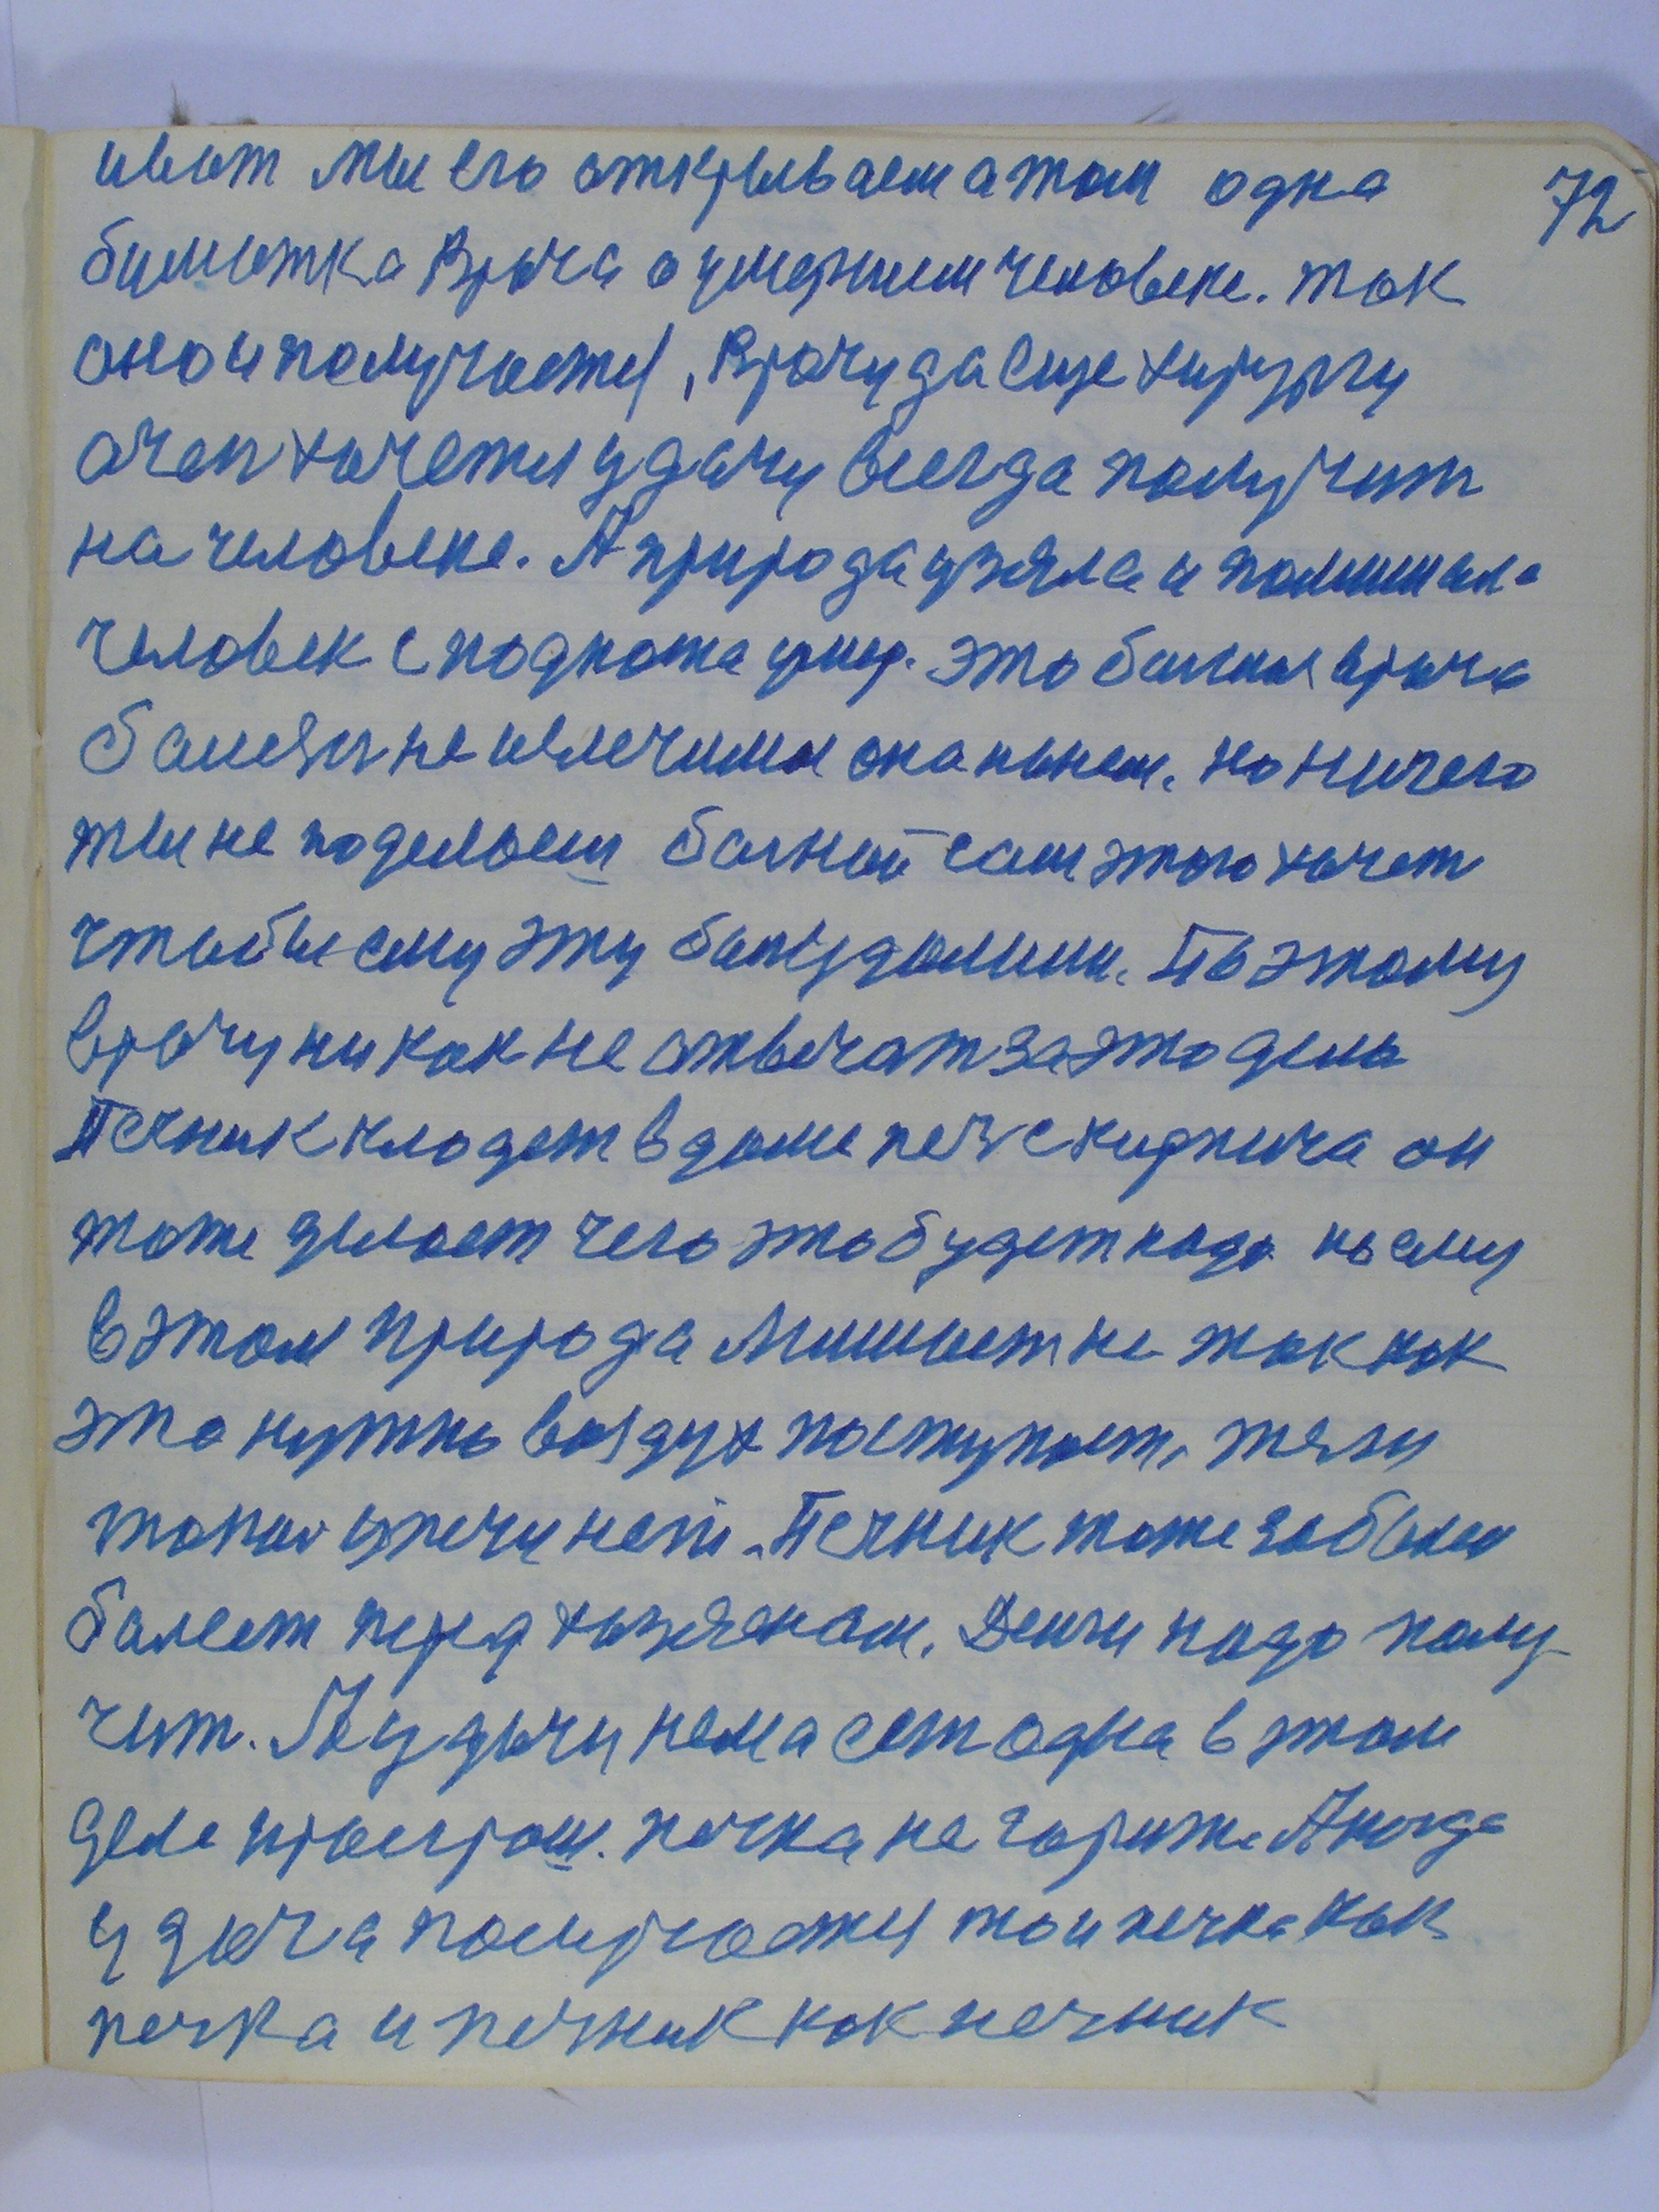 ивот мы его открываем а там одна 72
бумажка Врача о умершем человеке. так
оно и получается, Врачу да еще хирургу
очен хочется удачу всегда получит
на человеке. А природа узяла и помишала
человек с под ножа умер. это болшая врача
болезн не излечимая она на нем. но ничего
ты не поделаеш болной сам этого хочет
чтобы ему эту бол удалили. Поэтому
врачу ни как не отвечат за это дело
Печник кладет в доме печ с кирпича он
тоже делает чего это будет надо но ему
в этом природа мишает не так как
это нужно воздух поступает, тяги
такой у печи нет. Печник тоже забыли
болеет перед хозяеном. Денги надо полу-
чит. А удачи нема ест одна в этом
деле проиграш. печка не горит. А когда
удача получается то и печка как
печка и печник как печник